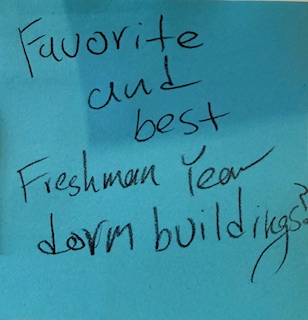 Favorite
and
best
Freshman Year
dorm buildings?